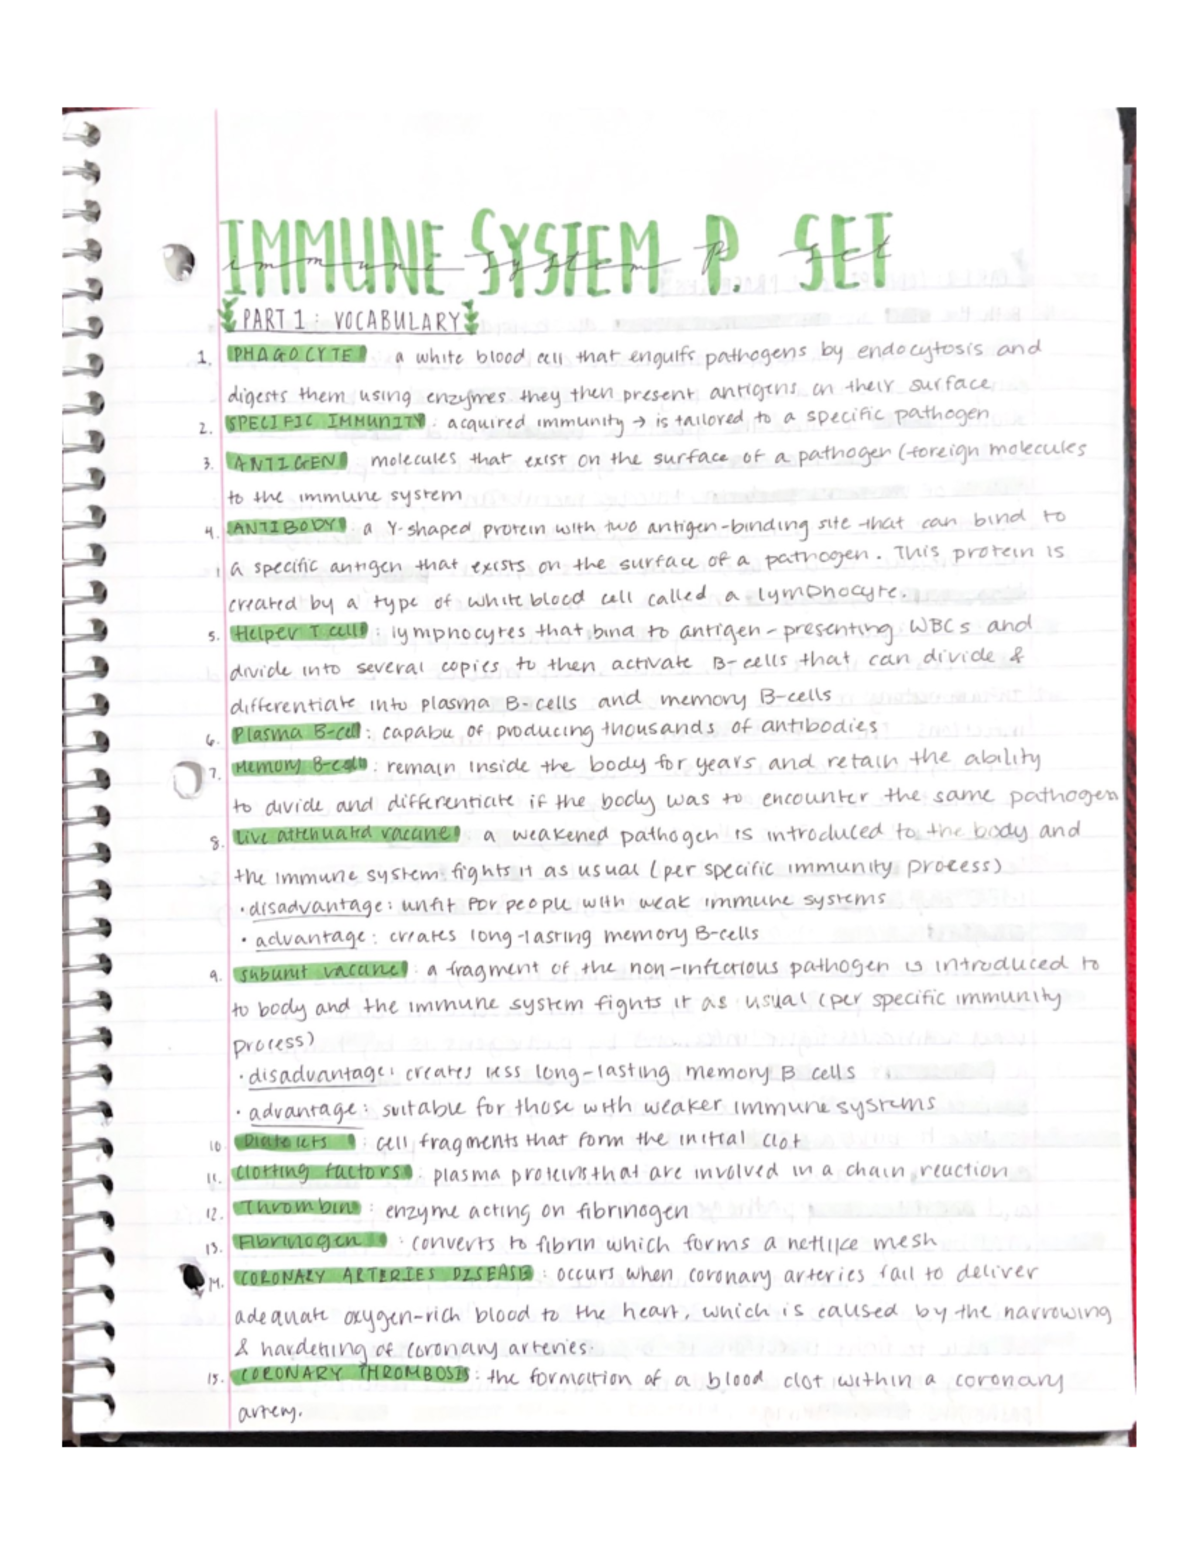 IMMUNE SYSTEM P. SET
immune system P. set
PART 1: VOCABULARY
1. PHAGOCYTE a white blood cell that engulfs pathogens by endocytosis and
digests them using enzymes they then present antigens on their surface
2. SPECIFIC IMMUNITY: acquired immunity → is tailored to a specific pathogen
3. ANTIGEN molecules that exist on the surface of a pathogen (foreign molecules
to the immune system
4. ANTIBODY: a Y-shaped protein with two antigen-binding site that can bind to
a specific antigen that exists on the surface of a pathogen. This protein is
created by a type of white blood cell called a lymphocyte.
5. Helper T cell: lymphocytes that bind to antigen-presenting WBCs and
divide into several copies to then activate B-cells that can divide &
differentiate into plasma B-cells and memory B-cells
6. Plasma B-cell: capable of producing thousands of antibodies
7. Memory B-cells: remain inside the body for years and retain the ability
to divide and differentiate if the body was to encounter the same pathogen
8. live attenuated vaccine a weakened pathogen is introduced to the body and
the immune system fights it as usual (per specific immunity process)
• disadvantage: unfit for people with weak immune systems
• advantage: creates long-lasting memory B-cells
9. subunit vaccine: a fragment of the non-infectious pathogen is introduced to
to body and the immune system fights it as usual (per specific immunity
process)
• disadvantage: creates less long-lasting memory B cells
• advantage: suitable for those with weaker immune systems
10. Platelets: cell fragments that form the initial clot
11. Clotting factors: plasma proteins that are involved in a chain reaction
12. Thrombin: enzyme acting on fibrinogen
13. Fibrinogen: converts to fibrin which forms a netlike mesh
14. CORONARY ARTERIES DISEASE: occurs when coronary arteries fail to deliver
adequate oxygen-rich blood to the heart, which is caused by the narrowing
& hardening of coronary arteries.
15. CORONARY THROMBOSIS: the formation of a blood clot within a coronary
artery.